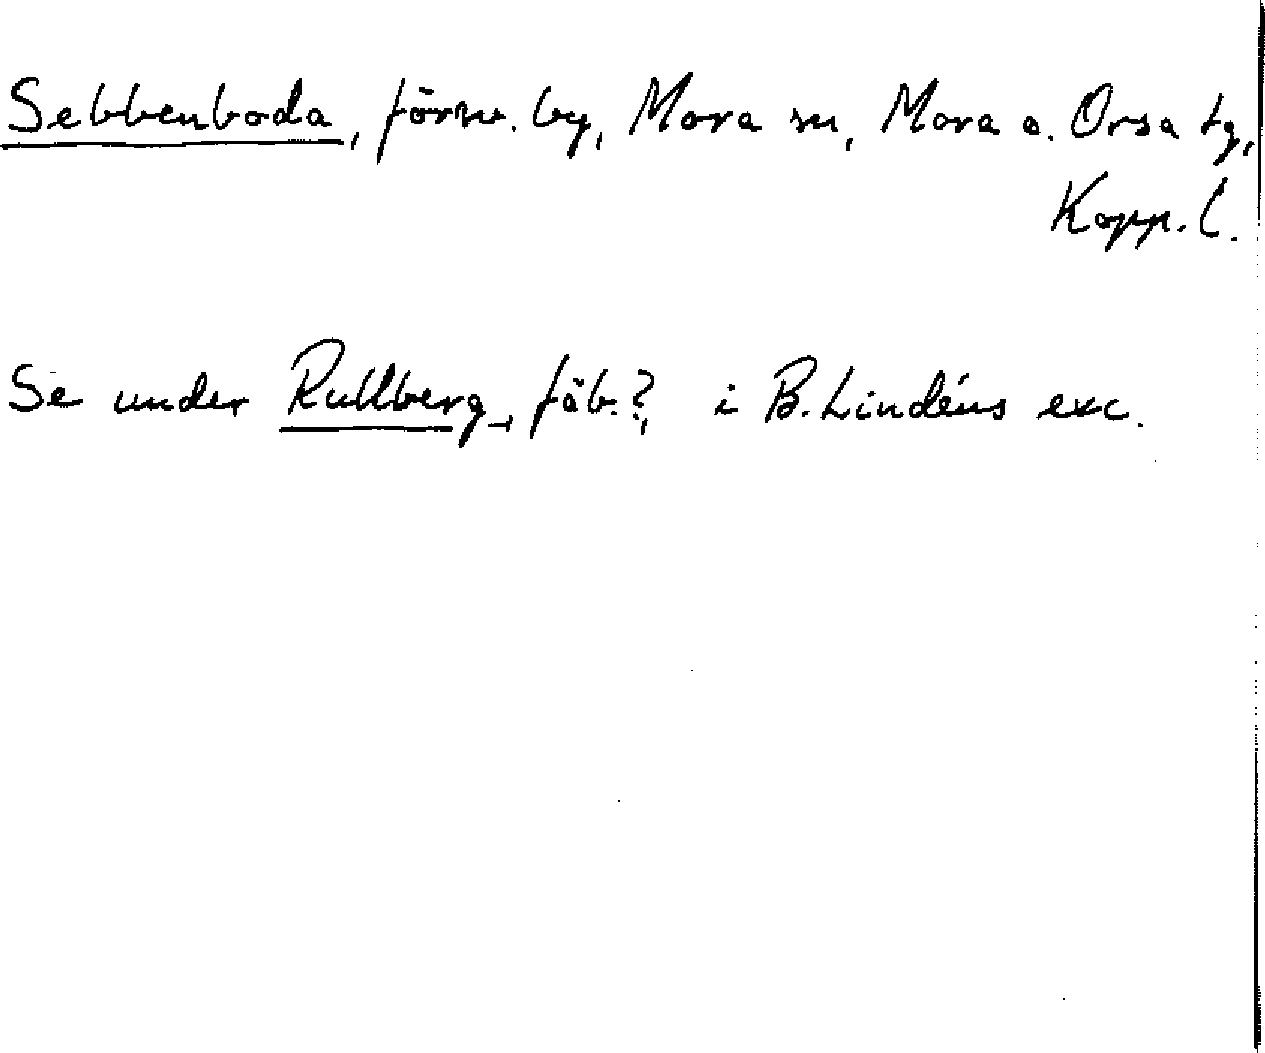 Sebbenboda, försv. by, Mora sn, Mora o. Orsa tg,
Kopp. l.
Se under Rullberg, fäb.?, i B. Lindéns exc.